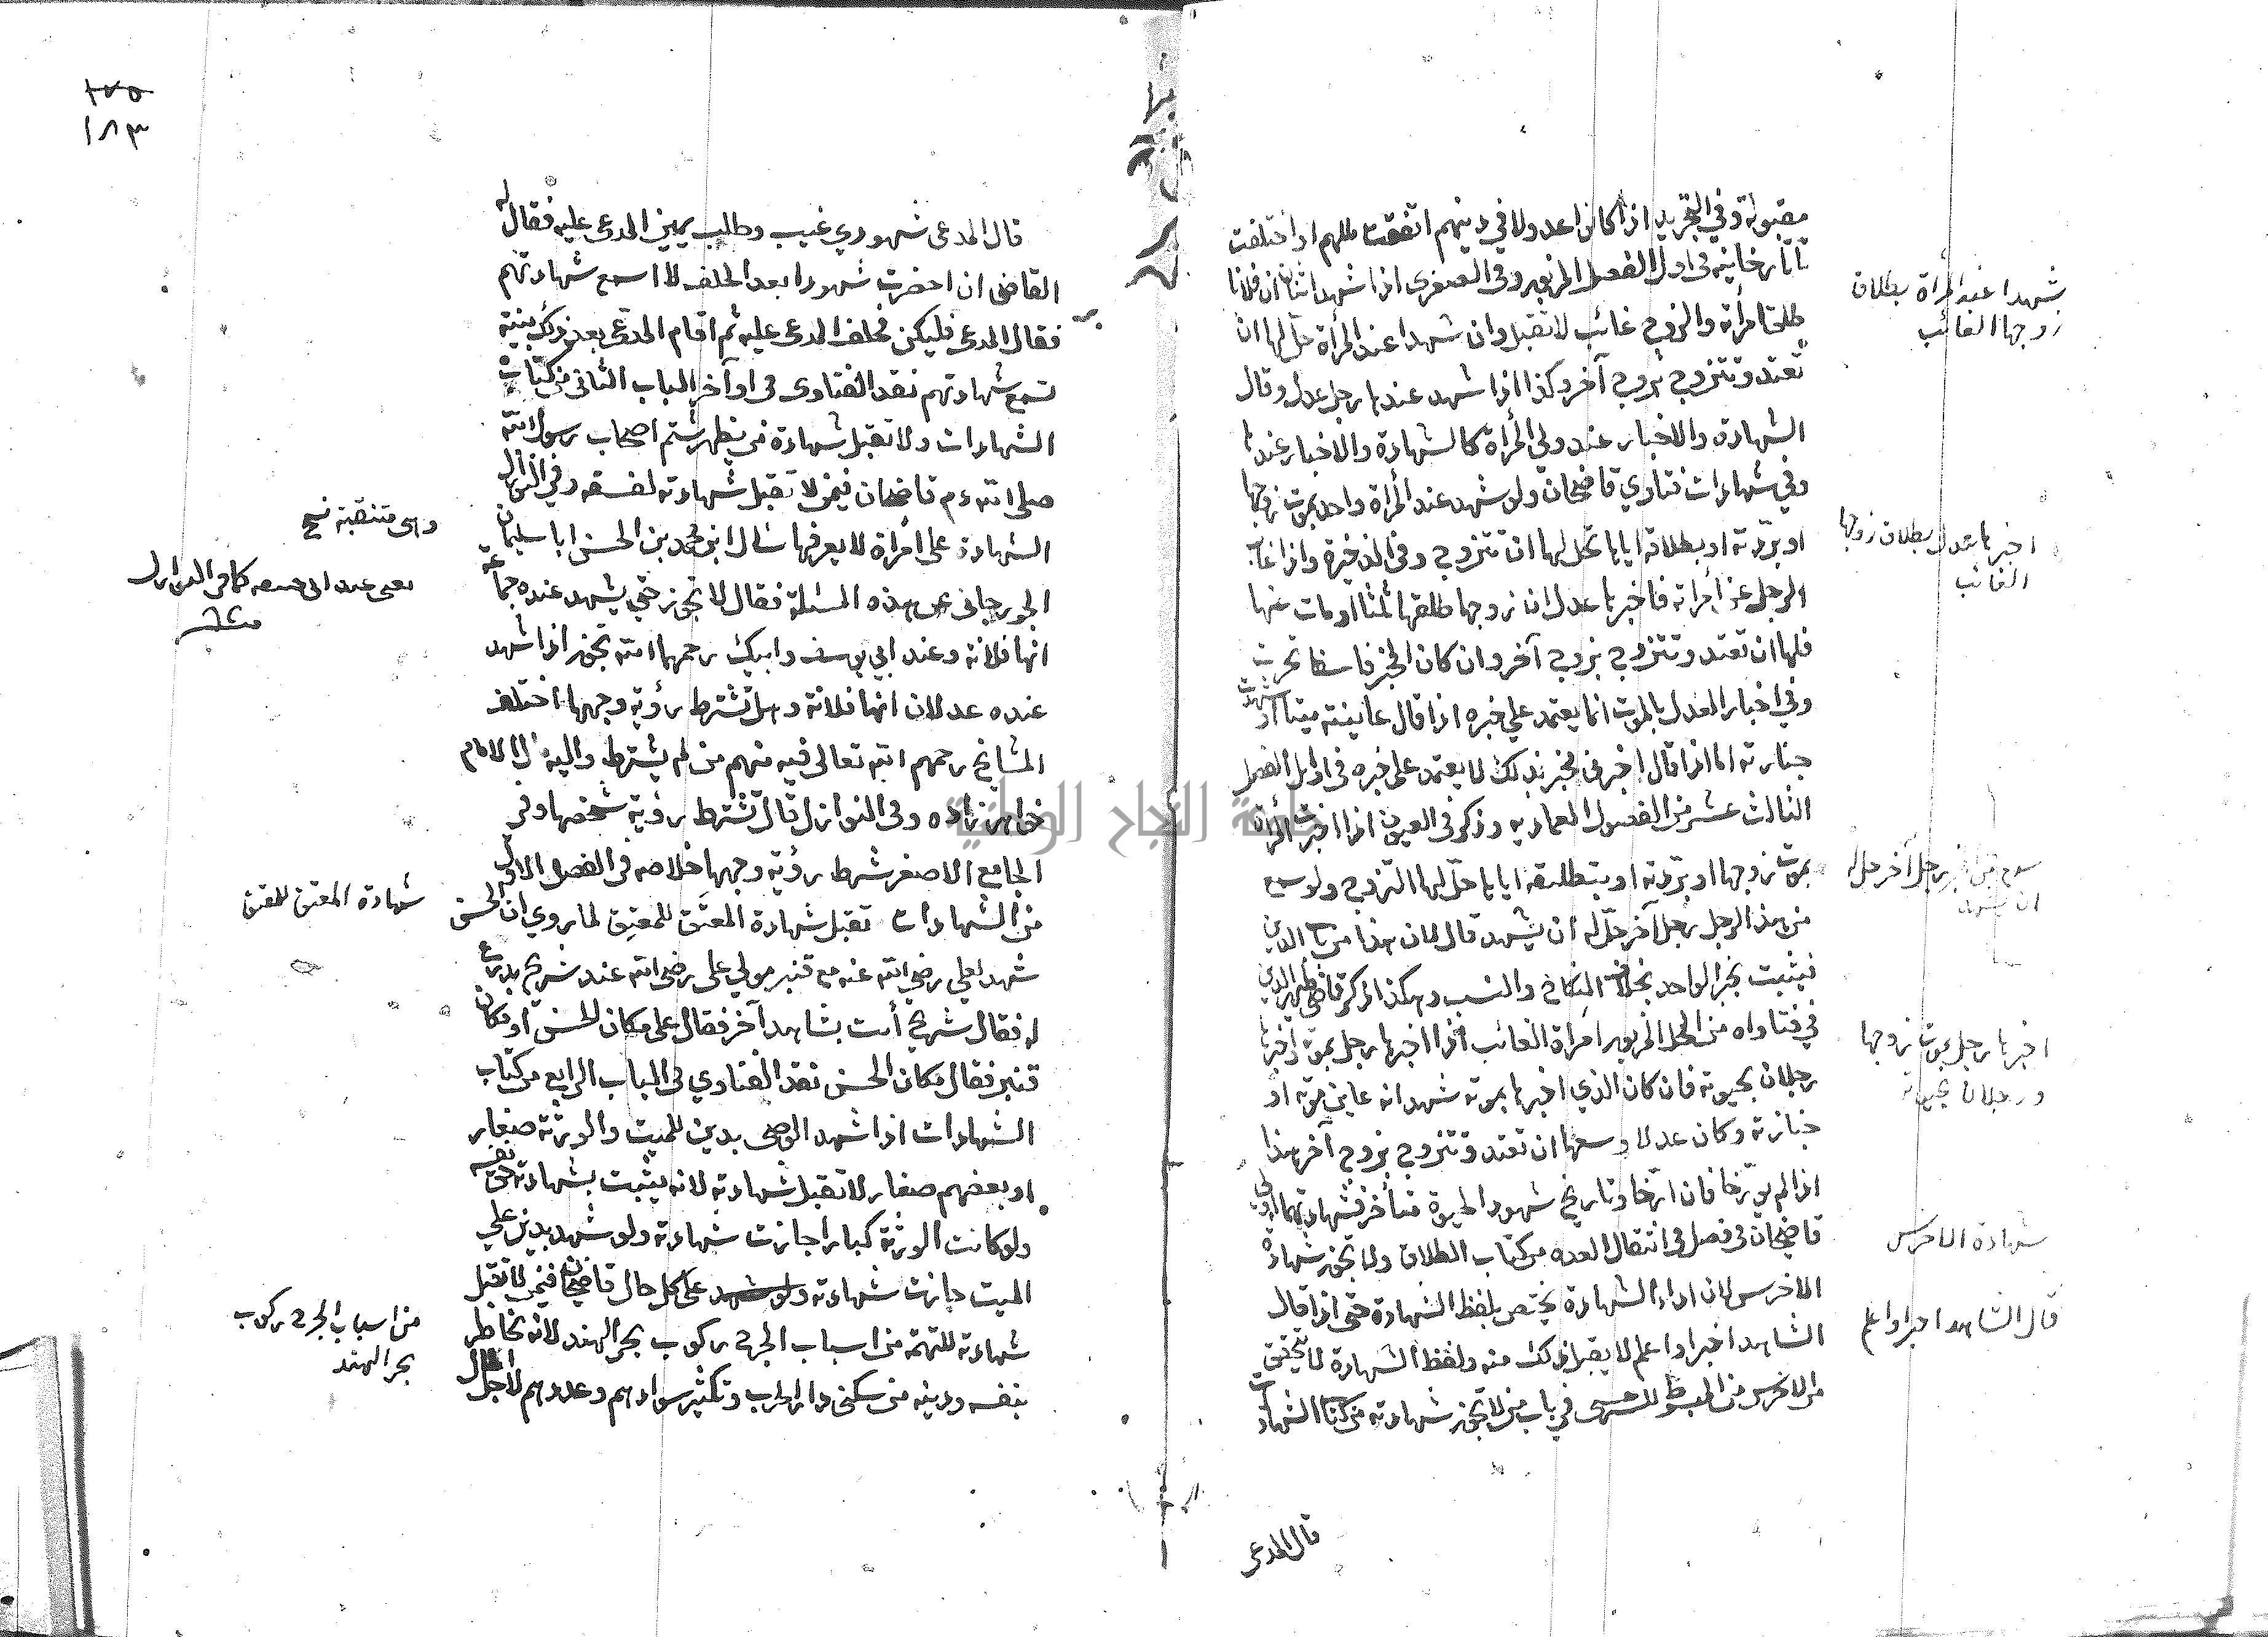 مقبولة وفي التجريد اذا كانوا عدولا في دينهم اتفقت مللهم او اختلفت
تاتارخانيه في اول الفصل المزبور وفي الصغرى اذا شهد اثنان ان فلانا
طلق امرأته والزوج غائب لا تقبل وان شهدا عند المرأة حل لها ان
تعتد وتتزوج بزوج آخر وكذا اذا شهد عندها رجل عدل وقال
الشهادة والاخبار عند ولي المرأة كالشهادة والاخبار عندها
وفي شهادات فتاوي قاضيخان ولو شهد عند المرأة واحد بموت زوجها
او بردته او بطلاقه اياها يحل لها ان تتزوج وفي الذخيرة واذا غاب
الرجل عن امرأته فاخبرها عدل ان زوجها طلقها ثلثا او مات عنها
فلها ان تعتد وتتزوج بزوج آخر وان كان المخبر فاسقا تحرت
وفي اخبار العدل بالموت انما يعتمد علي خبره اذا قال عاينته ميتا او شهدت
جنازته اما اذا قال اخبرني مخبر بذلك لا يعتمد على خبره في اوايل الفصل
الثالث عشر من الفصول العماديه وذكر في العيون اذا اخبرت المرأة
بموت زوجها او بردته او بتطليقه اياها حل لها التزوج ولو سمع
من هذا الرجل رجل آخر حل له ان يشهد قال لان هذا من باب الدين
فيثبت بخبر الواحد بخلاف النكاح والنسب وهكذا ذكر قاضي ظهير الدين
في فتاواه من المحل المزبور امرأة الغائب اذا اخبرها رجل بموته واخبرها
رجلان بحيوته فان كان الذي اخبرها بموته شهد انه عاين موته او
جنازته وكان عدلا وسعها ان تعتد وتتزوج بزوج آخر هذا
اذا لم يؤرخا فان ارخا وتاريخ شهود الحيوة متأخر فشهادتهما اولى
قاضيخان في فصل في انتقال العده من كتاب الطلاق ولا تجوز شهادة
الاخرس لان اداء الشهادة يختص بلفظ الشهادة حتى اذا قال
الشاهد اخبر او اعلم لا يقبل ذلك منه ولفظ الشهادة لا يتحقق
من الاخرس من المبسوط للسرخسى في باب من لا تجوز شهادته من كتاب الشهادات
قال المدعى
شهدا عند امرأة بطلاق
زوجها الغائب
اخبرها عدل بطلاق زوجها
الغائب
رجل آخر حل له
ان يشهد
اخبرها رجل بموت زوجها
ورجلان بحيوته
شهادة الاخرس
قال الشاهد اخبر او اعلم
١٧٥
١٨٣
قال المدعى شهودي غيب وطالب يمين المدعى عليه فقال له
القاضى ان احضرت شهودا بعد الحلف لا اسمع شهادتهم
فقال المدعى فليكن فحلف المدعى عليه ثم اقام المدعى بعد ذلك بينة
تسمع شهادتهم نقد الفتاوى في اوآخر الباب الثانى من كتاب
الشهادات ولا تقبل شهادة من يظهر شتم اصحاب رسول الله
صلى الله وم قاضيخان فيمن لا تقبل شهادته لفسقه وفي النوازل
الشهادة على امرأة لا يعرفها سأل ابن محمد بن الحسن ابا سليمان
الجورجانى عن هذه المسئلة فقال لا تجوز حتي يشهد عنده جماعة
انها فلانة وعند ابي يوسف وابيك رحمهما الله تجوز اذا شهد
عنده عدلان انها فلانة وهل تشترط رؤية وجهها اختلف
المشايخ رحمهم الله تعالى فيه منهم من لم يشترط واليه مال الامام
خواهر زاده وفي النوازل قال تشترط رؤية شخصها وفي
الجامع الاصغر شرط رؤية وجهها خلاصه في الفصل الاول
من الشهادات تقبل شهادة المعتَق للمعتِق لما روي ان الحسن
شهد لعلي رضى الله عنه مع قنبر مولي على رضى الله عند شريح بدرع
له فقال شريح أئت بشاهد آخر فقال على مكان الحسن او مكان
قنبر فقال مكان الحسن نقد الفتاوي في الباب الرابع من كتاب
الشهادات اذا شهد الوصى بدين للميت والورثة صغار
او بعضهم صغار لا تقبل شهادته لانه يثبت بشهادته حق نفسه
ولو كانت الورثة كبارا جازت شهادته ولو شهد بدين علي
الميت جازت شهادته ولو شهد على كل حال قاضيخان فيمن لا تقبل
شهادته للتهمة من اسباب الجرح ركوب بحر الهند لانه يخاطر
بنفسه ودينه من سكنى دار الحرب وتكثير سوادهم وعددهم لاجل المال
وهى متنقبة نسخ
شهادة المعتق للمعتق
من اسباب الجرح ركوب
بحر الهند
جامعة النجاح الوطنية